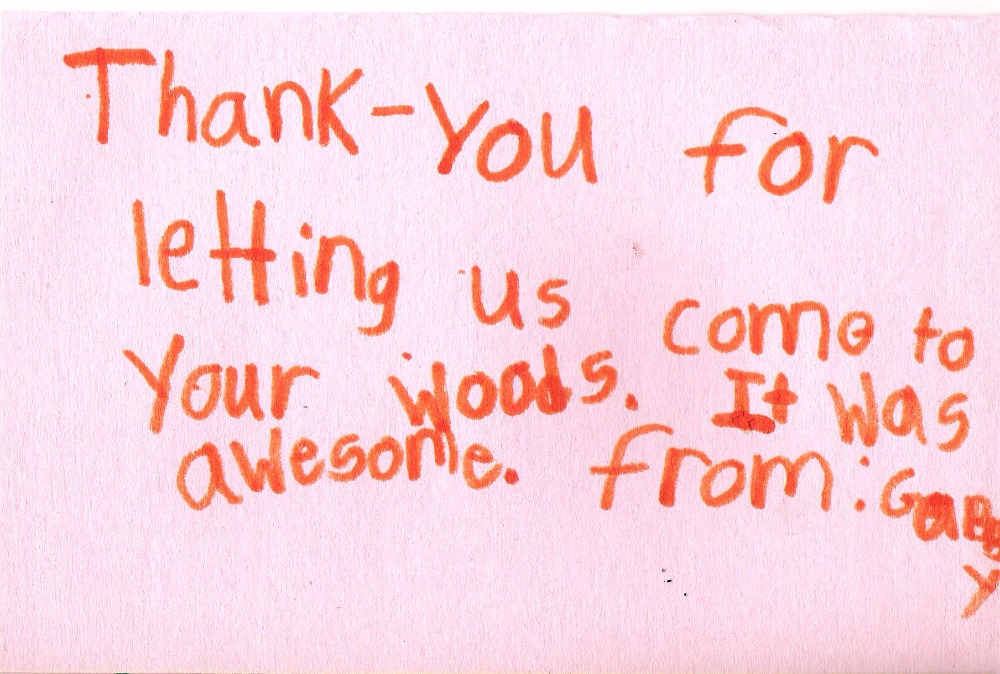 Thank-You for
letting us come to
Your woods. It was
awesome. from: GaBB
y